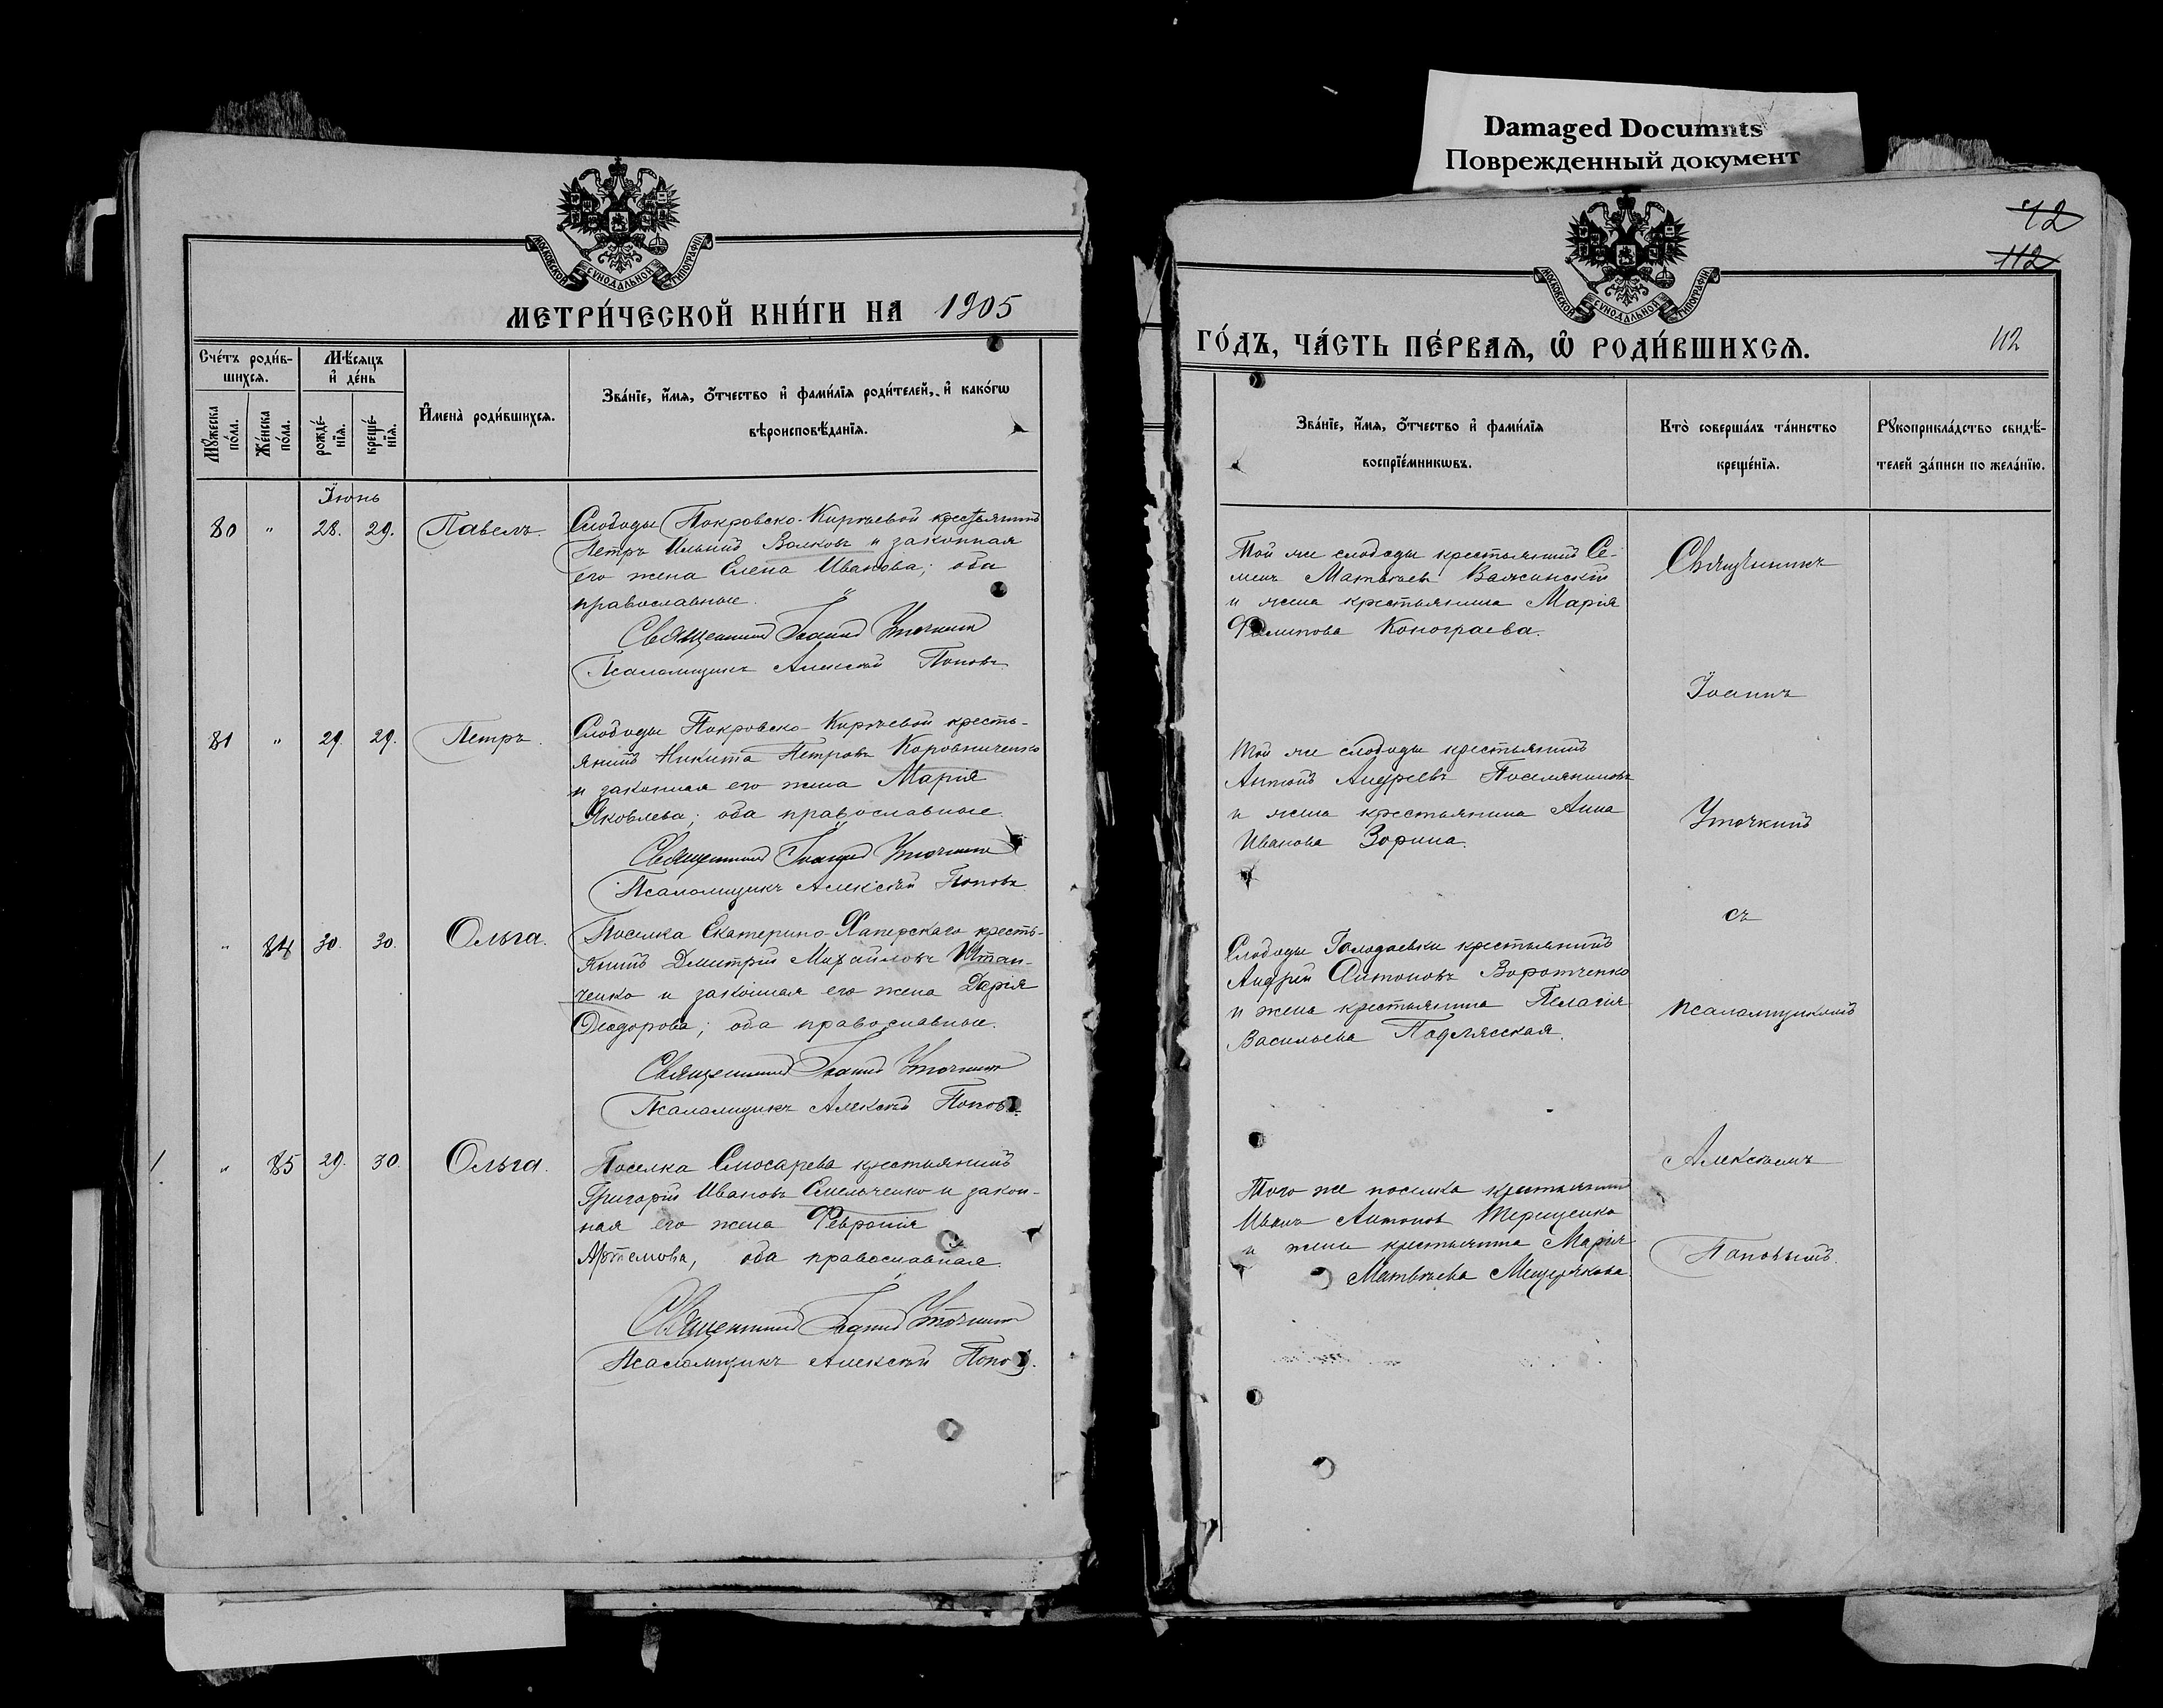 Damaged Documnts
Поврежденный документ
МОСКОВСКОЙ СѴНОДАЛЬНОЙ ТИПОГРАФІИ
МЕТРИ́ЧЕСКОЙ КНИ́ГИ НА 1905
Сче́тъ роди́в-
шихсѧ.
Мѣ́сѧцъ
и҆ де́нь
Мꙋ́жеска
по́ла.
Же́нска
по́ла.
рожде́-
нїѧ.
креще́-
нїѧ.
И҆мена̀ роди́вшихсѧ.
Зва́нїе, и҆́мѧ, ѻ҆́тчество и҆ фами́лїѧ роди́телей, и҆ како́гѡ
вѣроисповѣ́данїѧ.
Іюнь
80 " 28. 29. Павелъ.
Слободы Покровско-Кирѣевой крестьянинъ
Петръ Ильинъ Волковъ и законная
его жена Елена Иванова; оба
православные.
Священникъ Іоаннъ Уточкинъ
Псаломщикъ Алексѣй Поповъ
81 " 29. 29. Петръ.
Слободы Покровско-Кирѣевой кресть-
янинъ Никита Петровъ Коровниченко
и законная его жена Марія
Яковлева; оба православные.
Священникъ Іоаннъ Уточкинъ
Псаломщикъ Алексѣй Поповъ
" 84 30. 30. Ольга.
Поселка Екатерино-Хаперскаго кресть-
янинъ Дмитрій Михайловъ Штан-
ченко и законная его жена Дарія
Ѳеодорова; оба православные.
Священникъ Іоаннъ Уточкинъ
Псаломщикъ Алексѣй Поповъ.
" 85 29. 30. Ольга.
Поселка Слюсарева крестьянинъ
Григорій Ивановъ Смельченко и закон-
ная его жена Февронія
Артемова, оба православная.
Священникъ Іоаннъ Уточкинъ
Псаломщикъ Алексѣй Поповъ.
42
112
МОСКОВСКОЙ СѴНОДАЛЬНОЙ ТИПОГРАФІИ
ГО́ДЪ, ЧА́СТЬ ПЕ́РВАѦ, Ѽ РОДИ́ВШИХСѦ.
112
Зва́нїе, и҆́мѧ, ѻ҆́тчество и҆ фами́лїѧ
воспрїе́мникѡвъ.
Кто̀ соверша́лъ та́инство
креще́нїѧ.
Рꙋкоприкла́дство свидѣ́-
телей за́писи по жела́нїю.
Той же слободы крестьянинъ Се-
менъ Матвѣевъ
и жена крестьянина Марія
Филипова Конограева.
Той же слободы крестьянинъ
Антонъ Андреевъ Поселяниновъ
и жена крестьянина Анна
Иванова Зорина.
Слободы Голодаевки крестьянинъ
Андрей Антоновъ Воротченко
и жена крестьянина Пелагія
Васильева Подлясская.
Того же поселка крестьянинъ
Иванъ Антоновъ Терещенко
и жена крестьянина Марія
Матвѣева Мещерякова.
Священникъ
Іоаннъ
Уточкинъ
съ
псаломщикомъ
Алексѣемъ
Поповымъ.